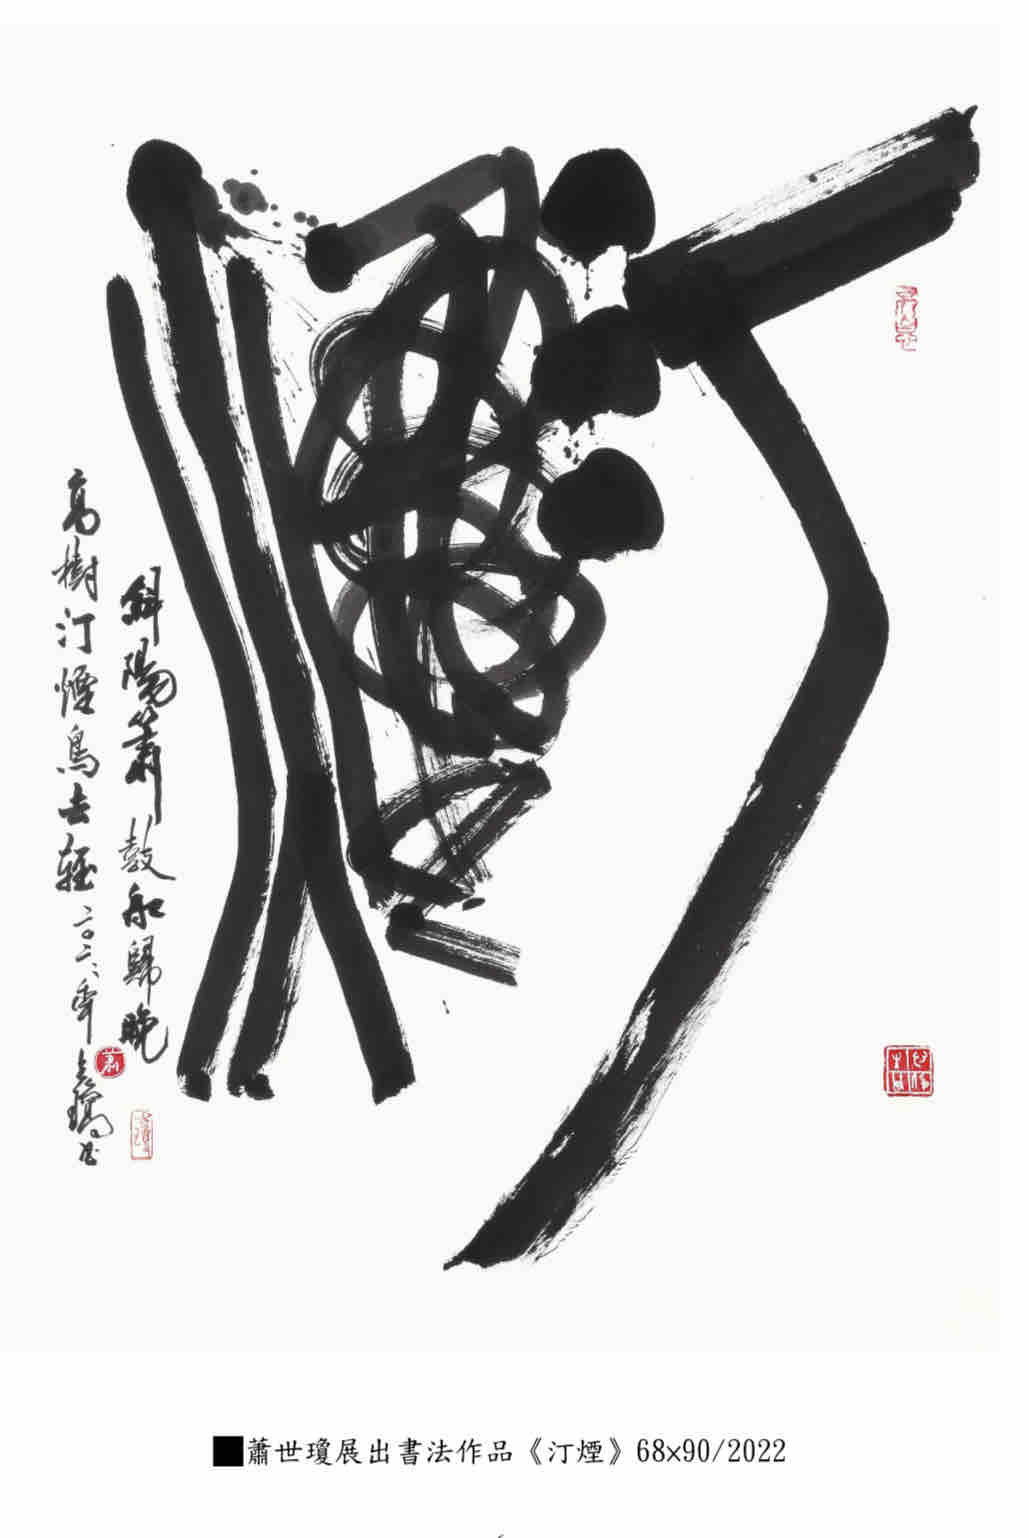 汀煙
斜陽簫鼓船歸晚
高樹汀煙鳥去輕二〇二二年世瓊書
蕭
■蕭世瓊展出書法作品《汀煙》68x90/2022